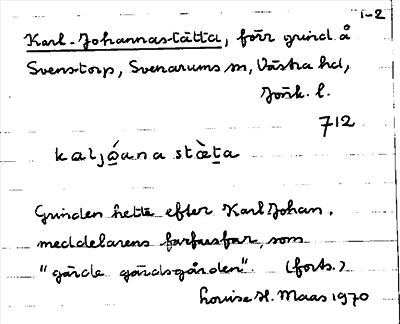 1-2
Karl-Johannastätta, förr grind å
Svenstorp, Svenarums sn, Västra hd,
Jönk. l.
712
kaljóana stæ̀ta
Grinden hette efter Karl Johan,
meddelarens farfars far, som
"gärde gärdsgården". (forts.)
Louise H. Maas 1970